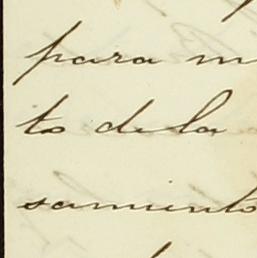 para m
to dela
samiento